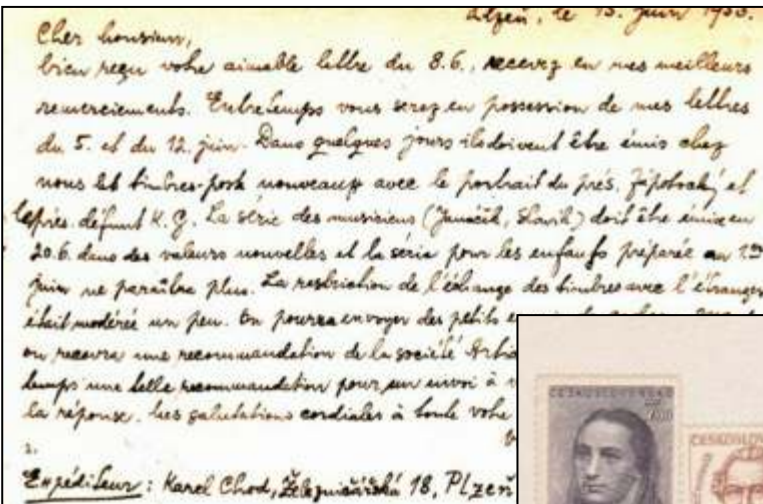 Plzeň, le 13. juin 1953.
Cher Monsieur,
bien reçu votre aimable lettre du 8.6., recevez en mes meilleurs
remerciements. Entretemps vous serez en possession de mes lettres
du 5. et du 12. juin. Dans quelques jours ils doivent être émis chez
nous les timbres-poste nouveaux avec le portrait du prés. Zápotocký et
le prés. défunt K. G. La série des musiciens (Janáček, Slavík) doit être émise en
20.6. dans des valeurs nouvelles et la série pour les enfants préparée au 1er
juin ne paraîtra plus. La restriction de l'échange des timbres avec l'étranger
était modérée un peu. On pourra envoyer des petits
on recevra une recommandation de la société
temps une belle recommandation pour un envoi à
la réponse. Mes salutations cordiales à toute votre
Expéditeur: Karel Chod, Železničářská 18, Plzeň
ČESKOSLOVENSKO
ČESKOSLOV